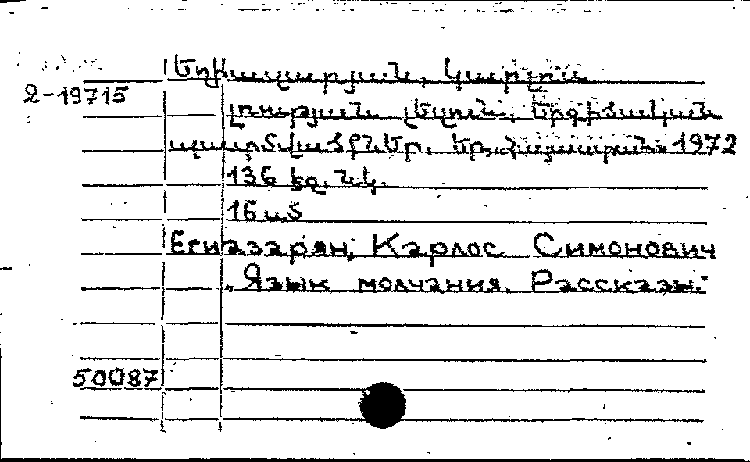 Եղիազարյան, Կարլոս
2-19715
լռության լեզուն, Երգիծական
պատմվածքներ. Եր., Հայաստան, 1972
136 էջ. նկ.
16 սմ
Егиазарян, Карлос Симонович
"Язык молчания. Рассказы."
50087